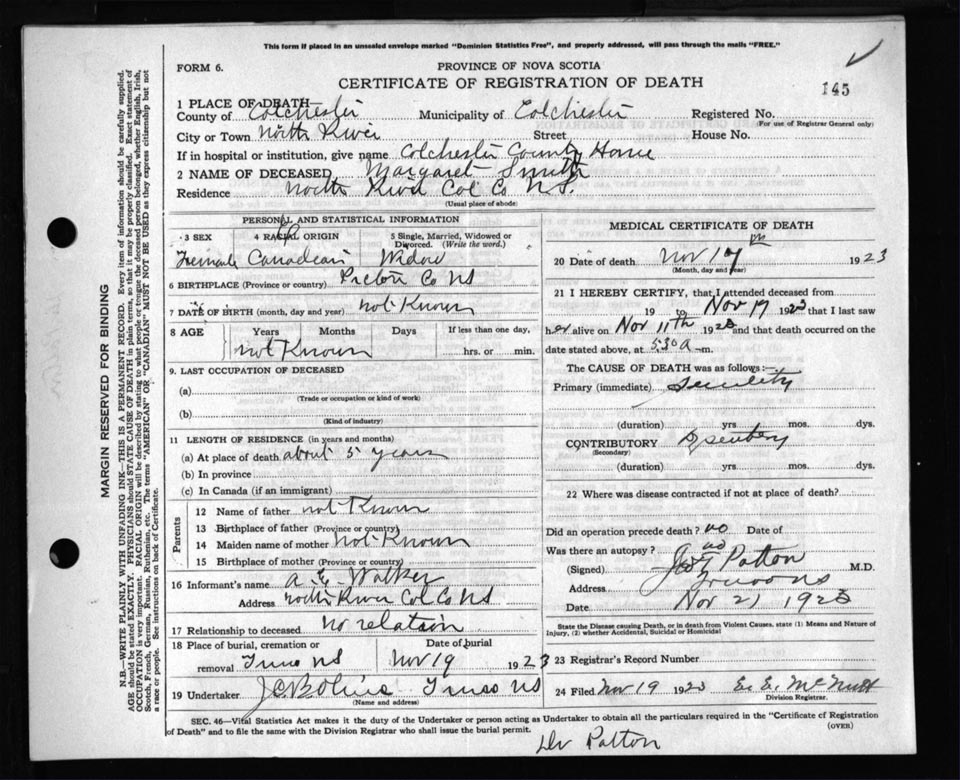 This form if placed in an unsealed envelope marked "Dominion Statistics Free", and properly addressed, will pass through the mails "FREE."
FORM 6.
PROVINCE OF NOVA SCOTIA
CERTIFICATE OF REGISTRATION OF DEATH
145
1 PLACE OF DEATH
County of Colchester Municipality of Colchester Registered No.
(For use of Registrar General only)
City or Town North River Street House No.
If in hospital or institution, give name Colchester County Home
2 NAME OF DECEASED Margaret Smith
Residence North River Col Co N.S.
(Usual place of abode)
PERSONAL AND STATISTICAL INFORMATION
3 SEX 4 RACIAL ORIGIN 5 Single, Married, Widowed or Divorced. (Write the word.)
Female Canadian Widow
6 BIRTHPLACE (Province or country) Pictou Co NS
7 DATE OF BIRTH (month, day and year) not Known
8 AGE Years Months Days If less than one day,
not Known hrs. or min.
9. LAST OCCUPATION OF DECEASED
(a)
(Trade or occupation or kind of work)
(b)
(Kind of industry)
11 LENGTH OF RESIDENCE (in years and months)
(a) At place of death about 5 years
(b) In province
(c) In Canada (if an immigrant)
Parents
12 Name of father not Known
13 Birthplace of father (Province or country)
14 Maiden name of mother not Known
15 Birthplace of mother (Province or country)
16 Informant's name Walker
Address North River Col Co NS
17 Relationship to deceased no relation
18 Place of burial, cremation or Date of burial
removal Truro NS Nov 19 1923
19 Undertaker Truro NS
(Name and address)
MEDICAL CERTIFICATE OF DEATH
20 Date of death Nov 17 1923
(Month, day and year)
21 I HEREBY CERTIFY, that I attended deceased from
19 to Nov 17 1923 that I last saw
her alive on Nov 11th 1923 and that death occurred on
date stated above, at 5.30 a m.
The CAUSE OF DEATH was as follows:—
Primary (immediate) Senility
(duration) yrs. mos. dys.
CONTRIBUTORY Dysentery
(Secondary)
(duration) yrs. mos. dys.
22 Where was disease contracted if not at place of death?
Did an operation precede death? no Date of
Was there an autopsy? no
(Signed) Patton M.D.
Address Truro NS
Date Nov 21 1923
State the Disease causing Death, or in death from Violent Causes, state (1) Means and Nature of
Injury, (2) whether Accidental, Suicidal or Homicidal
23 Registrar's Record Number
24 Filed Nov 19 1923 E. E. McNutt
Division Registrar.
SEC. 46—Vital Statistics Act makes it the duty of the Undertaker or person acting as Undertaker to obtain all the particulars required in the "Certificate of Registration
of Death" and to file the same with the Division Registrar who shall issue the burial permit. (OVER)
Dr Patton
MARGIN RESERVED FOR BINDING
N.B.—WRITE PLAINLY WITH UNFADING INK—THIS IS A PERMANENT RECORD. Every item of information should be carefully supplied.
AGE should be stated EXACTLY. PHYSICIANS should STATE CAUSE OF DEATH in plain terms, so that it may be properly classified. Exact statement of
OCCUPATION is very important. RACIAL ORIGIN will be described by stating to what people or tongue the deceased person belonged, whether English, Irish,
Scotch, French, German, Russian, Ruthenian, etc. The terms "AMERICAN" OR "CANADIAN" MUST NOT BE USED as they express citizenship but not
a race or people. See instructions on back of Certificate.